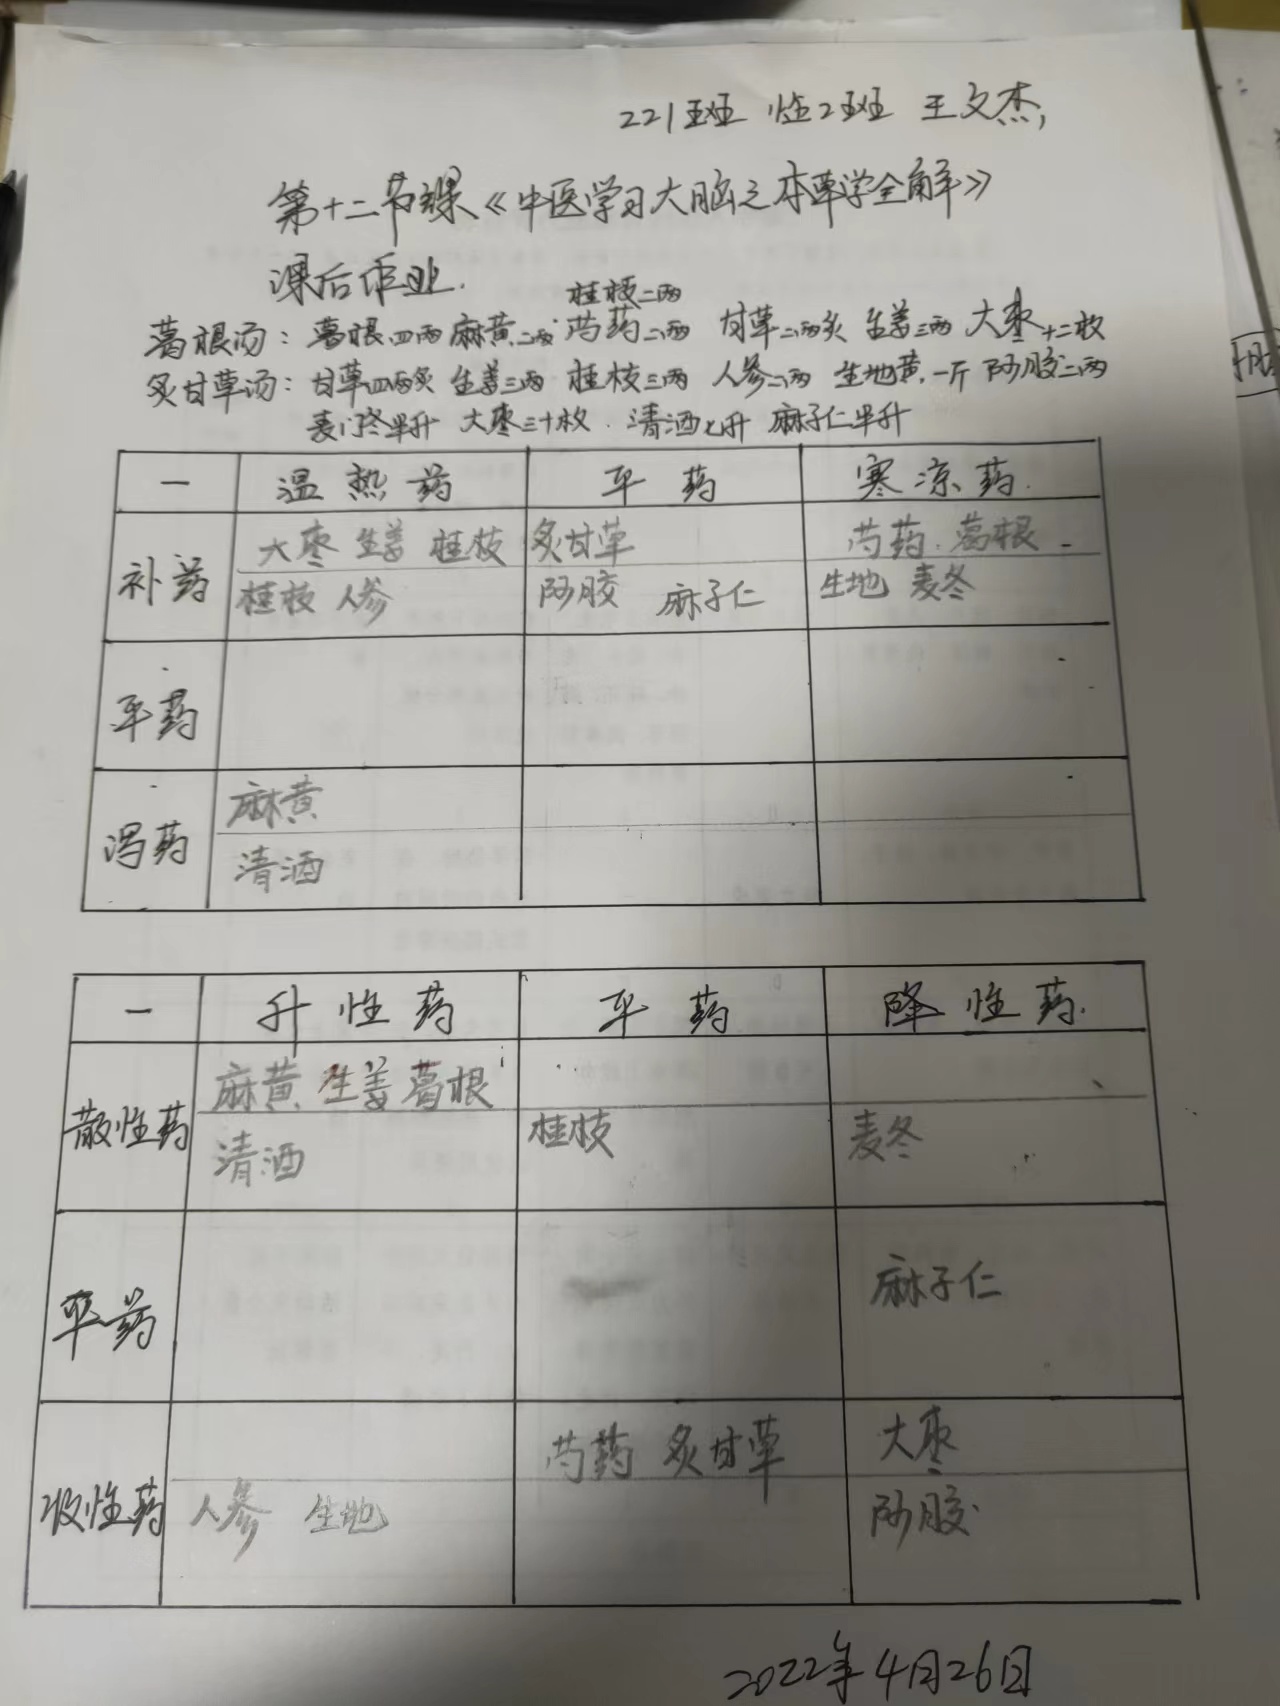 221班 临2班 王文杰
第十二节课《中医学习大脑之本草学全解》
课后作业.
桂枝二两
葛根汤：葛根四两 麻黄二两 芍药二两 甘草二两炙 生姜三两 大枣十二枚
炙甘草汤：甘草四两炙 生姜三两 桂枝三两 人参二两 生地黄一斤 阿胶二两
麦门冬半升 大枣三十枚. 清酒七升 麻子仁半升
一 温热药 平药 寒凉药.
大枣 生姜 桂枝 炙甘草 芍药. 葛根
补药
桂枝 人参 阿胶 麻子仁 生地 麦冬
平药
麻黄
泻药
清酒
一 升性药 平药 降性药.
麻黄 生姜 葛根
散性药
清酒 桂枝 麦冬
平药 麻子仁
芍药 炙甘草 大枣
收性药 人参 生地 阿胶
2022年4月26日